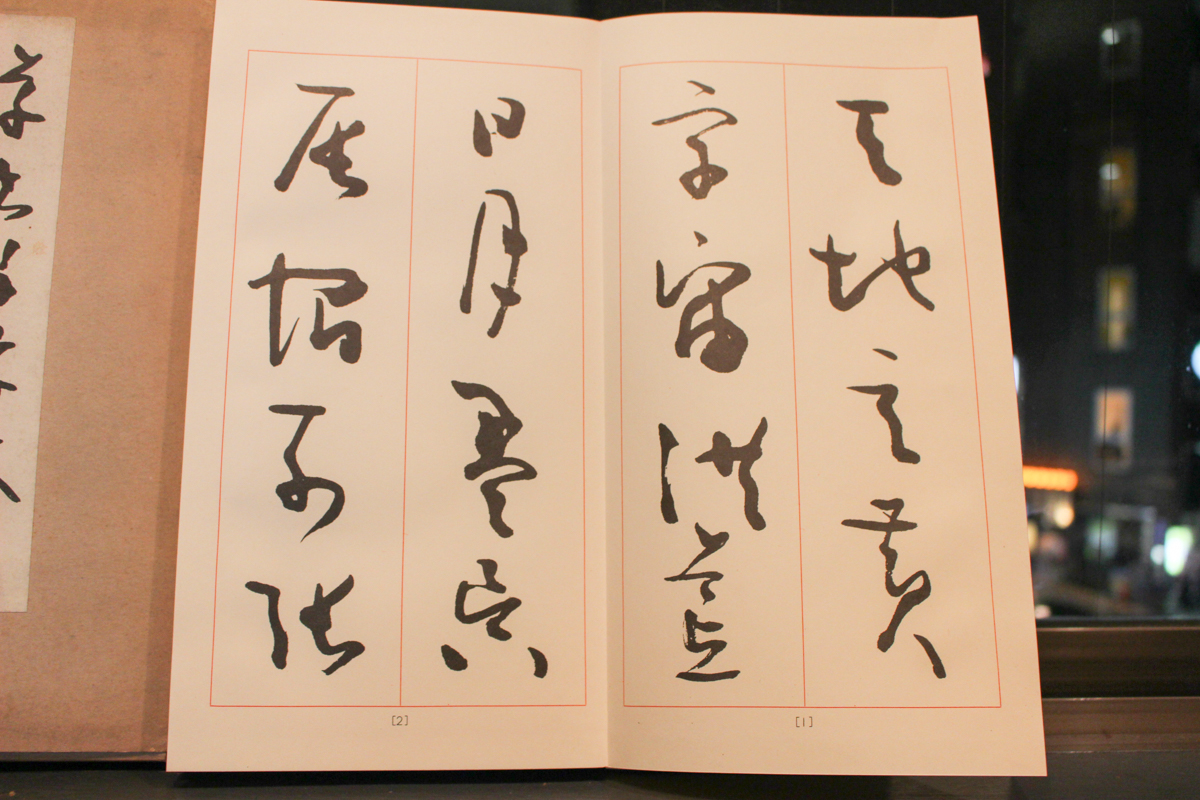 天地玄黄
宇宙洪荒
[1]
日月盈昃
辰宿列張
[2]